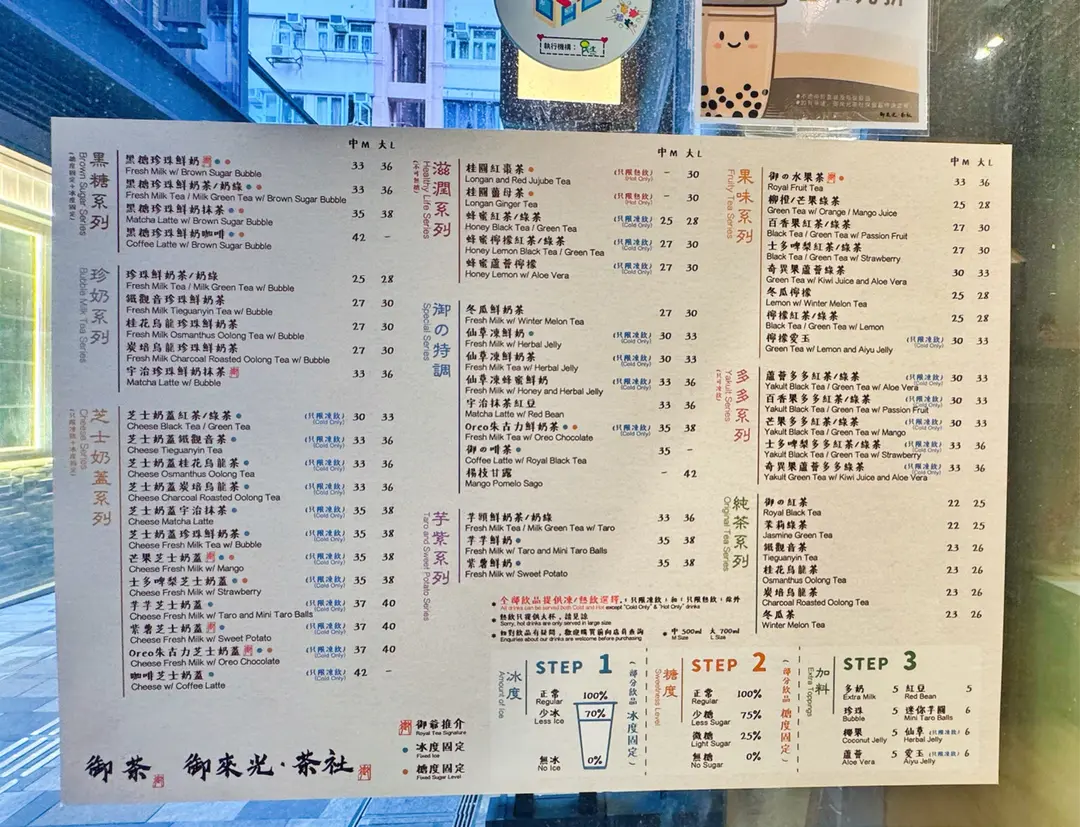 執行機構：
中M 大L
黑糖系列
Brown Sugar Series
(糖度固定+冰度固定)
黑糖珍珠鮮奶 33 36
Fresh Milk w/ Brown Sugar Bubble
黑糖珍珠鮮奶茶/奶綠 33 36
Fresh Milk Tea / Milk Green Tea w/ Brown Sugar Bubble
黑糖珍珠鮮奶抹茶 35 38
Matcha Latte w/ Brown Sugar Bubble
黑糖珍珠鮮奶咖啡 42 -
Coffee Latte w/ Brown Sugar Bubble
珍奶系列
Bubble Milk Tea Series
珍珠鮮奶茶/奶綠 25 28
Fresh Milk Tea / Milk Green Tea w/ Bubble
鐵觀音珍珠鮮奶茶 27 30
Fresh Milk Tieguanyin Tea w/ Bubble
桂花烏龍珍珠鮮奶茶 27 30
Fresh Milk Osmanthus Oolong Tea w/ Bubble
炭焙烏龍珍珠鮮奶茶 27 30
Fresh Milk Charcoal Roasted Oolong Tea w/ Bubble
宇治珍珠鮮奶抹茶 33 36
Matcha Latte w/ Bubble
芝士奶蓋系列
Cheese Series
芝士奶蓋紅茶/綠茶 (只限凍飲) 30 33
Cheese Black Tea / Green Tea (Cold Only)
芝士奶蓋鐵觀音茶 (只限凍飲) 33 36
Cheese Tieguanyin Tea (Cold Only)
芝士奶蓋桂花烏龍茶 (只限凍飲) 33 36
Cheese Osmanthus Oolong Tea (Cold Only)
芝士奶蓋炭焙烏龍茶 (只限凍飲) 33 36
Cheese Charcoal Roasted Oolong Tea (Cold Only)
芝士奶蓋宇治抹茶 (只限凍飲) 35 38
Cheese Matcha Latte (Cold Only)
芝士奶蓋珍珠鮮奶茶 (只限凍飲) 35 38
Cheese Fresh Milk Tea w/ Bubble (Cold Only)
芒果芝士奶蓋 (只限凍飲) 35 38
Cheese Fresh Milk w/ Mango (Cold Only)
士多啤梨芝士奶蓋 (只限凍飲) 35 38
Cheese Fresh Milk w/ Strawberry (Cold Only)
芋芋芝士奶蓋 (只限凍飲) 37 40
Cheese Fresh Milk w/ Taro and Mini Taro Balls (Cold Only)
紫薯芝士奶蓋 (只限凍飲) 37 40
Cheese Fresh Milk w/ Sweet Potato (Cold Only)
Oreo朱古力芝士奶蓋 (只限凍飲) 37 40
Cheese Fresh Milk w/ Oreo Chocolate (Cold Only)
咖啡芝士奶蓋 (只限凍飲) 42 -
Cheese w/ Coffee Latte (Cold Only)
御爺推介
Royal Tea Signature
冰度固定
Fixed Ice
糖度固定
Fixed Sugar Level
御茶 御來光·茶社
中M 大L
滋潤系列
Healthy Life Series
(不可無糖)
桂圓紅棗茶 (只限熱飲) - 30
Longan and Red Jujube Tea (Hot Only)
桂圓薑母茶 (只限熱飲) - 30
Longan Ginger Tea (Hot Only)
蜂蜜紅茶/綠茶 (只限凍飲) 25 28
Honey Black Tea / Green Tea (Cold Only)
蜂蜜檸檬紅茶/綠茶 (只限凍飲) 27 30
Honey Lemon Black Tea / Green Tea (Cold Only)
蜂蜜蘆薈檸檬 (只限凍飲) 27 30
Honey Lemon w/ Aloe Vera (Cold Only)
御の特調
Special Series
冬瓜鮮奶茶 27 30
Fresh Milk w/ Winter Melon Tea
仙草凍鮮奶 (只限凍飲) 30 33
Fresh Milk w/ Herbal Jelly (Cold Only)
仙草凍鮮奶茶 (只限凍飲) 30 33
Fresh Milk Tea w/ Herbal Jelly (Cold Only)
仙草凍蜂蜜鮮奶 (只限凍飲) 33 36
Fresh Milk w/ Honey and Herbal Jelly (Cold Only)
宇治抹茶紅豆 33 36
Matcha Latte w/ Red Bean
Oreo朱古力鮮奶茶 (只限凍飲) 35 38
Fresh Milk Tea w/ Oreo Chocolate (Cold Only)
御の啡茶 35 -
Coffee Latte w/ Royal Black Tea
楊枝甘露 - 42
Mango Pomelo Sago
芋紫系列
Taro and Sweet Potato Series
芋頭鮮奶茶/奶綠 33 36
Fresh Milk Tea / Milk Green Tea w/ Taro
芋芋鮮奶 35 38
Fresh Milk w/ Taro and Mini Taro Balls
紫薯鮮奶 35 38
Fresh Milk w/ Sweet Potato
中M 大L
果味系列
Fruity Tea Series
御の水果茶 33 36
Royal Fruit Tea
柳橙/芒果綠茶 25 28
Green Tea w/ Orange / Mango Juice
百香果紅茶/綠茶 27 30
Black Tea / Green Tea w/ Passion Fruit
士多啤梨紅茶/綠茶 27 30
Black Tea / Green Tea w/ Strawberry
奇異果蘆薈綠茶 30 33
Green Tea w/ Kiwi Juice and Aloe Vera
冬瓜檸檬 25 28
Lemon w/ Winter Melon Tea
檸檬紅茶/綠茶 25 28
Black Tea / Green Tea w/ Lemon
檸檬愛玉 (只限凍飲) 30 33
Green Tea w/ Lemon and Aiyu Jelly (Cold Only)
多多系列
Yakult Series
(只可凍飲)
蘆薈多多紅茶/綠茶 (只限凍飲) 30 33
Yakult Black Tea / Green Tea w/ Aloe Vera (Cold Only)
百香果多多紅茶/綠茶 (只限凍飲) 30 33
Yakult Black Tea / Green Tea w/ Passion Fruit (Cold Only)
芒果多多紅茶/綠茶 (只限凍飲) 30 33
Yakult Black Tea / Green Tea w/ Mango (Cold Only)
士多啤梨多多紅茶/綠茶 (只限凍飲) 33 36
Yakult Black Tea / Green Tea w/ Strawberry (Cold Only)
奇異果蘆薈多多綠茶 (只限凍飲) 33 36
Yakult Green Tea w/ Kiwi Juice and Aloe Vera (Cold Only)
純茶系列
Original Tea Series
御の紅茶 22 25
Royal Black Tea
茉莉綠茶 22 25
Jasmine Green Tea
鐵觀音茶 23 26
Tieguanyin Tea
桂花烏龍茶 23 26
Osmanthus Oolong Tea
炭焙烏龍茶 23 26
Charcoal Roasted Oolong Tea
冬瓜茶 23 26
Winter Melon Tea
全部飲品提供凍/熱飲選擇,「只限凍飲」和「只限熱飲」除外
All drinks can be served both Cold and Hot except "Cold Only" & "Hot Only" drinks
熱飲只提供大杯，請見諒
Sorry, hot drinks are only served in large size
如對飲品有疑問，歡迎購買前向店員查詢
Enquiries about our drinks are welcome before purchasing
中 500ml 大 700ml
M Size L Size
STEP 1
冰度
Amount of Ice
正常 100%
Regular
少冰 70%
Less Ice
無冰 0%
No Ice
(部分飲品冰度固定)
STEP 2
糖度
Sweetness Level
正常 100%
Regular
少糖 75%
Less Sugar
微糖 25%
Light Sugar
無糖 0%
No Sugar
(部分飲品糖度固定)
STEP 3
加料
Extra Toppings
多奶 5 紅豆 5
Extra Milk Red Bean
珍珠 5 迷你芋圓 6
Bubble Mini Taro Balls
椰果 5 仙草 (只限凍飲) 6
Coconut Jelly Herbal Jelly
蘆薈 5 愛玉 (只限凍飲) 6
Aloe Vera Aiyu Jelly